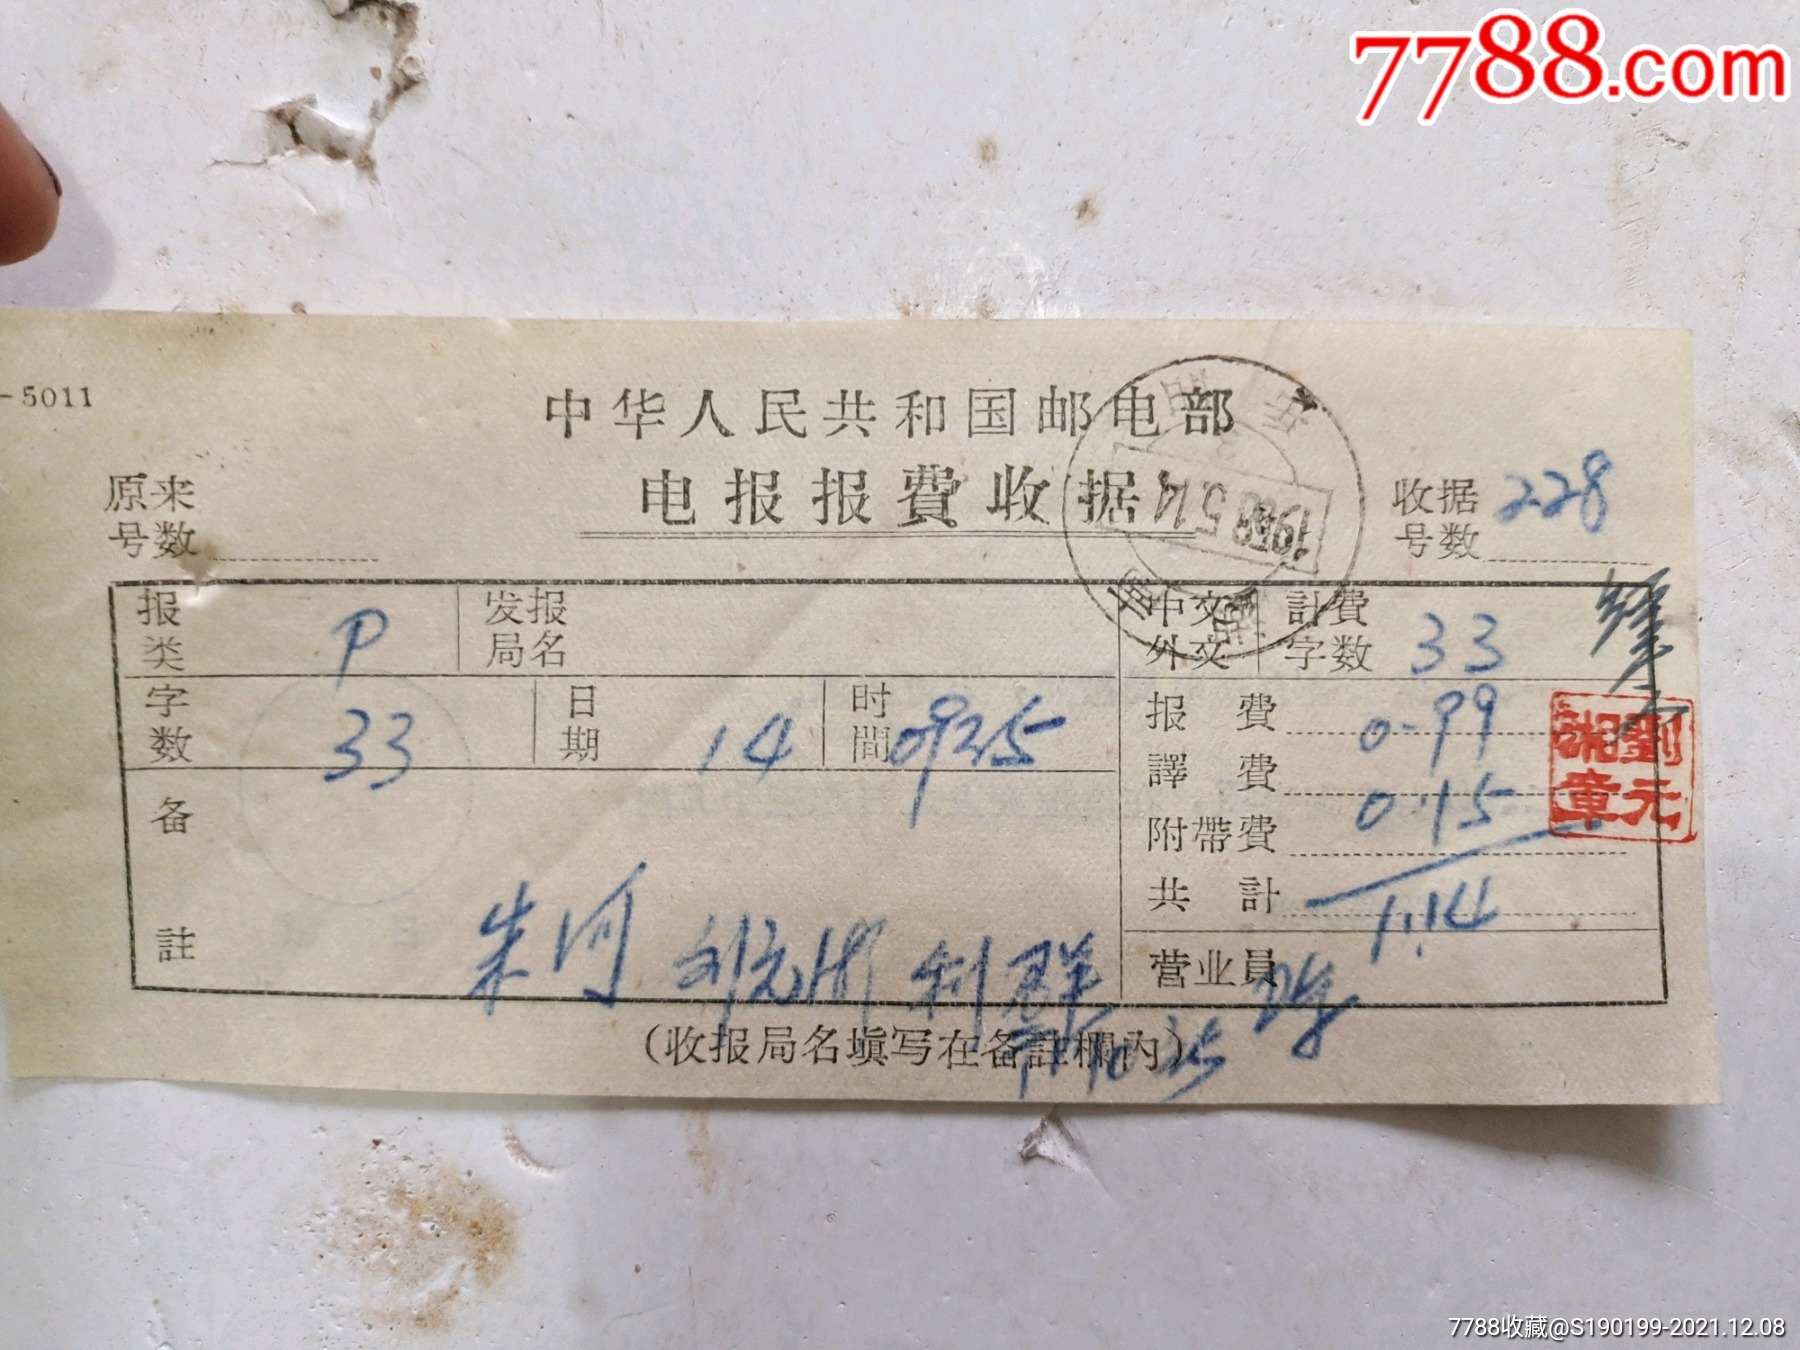 7788.com
-5011
中华人民共和国邮电部
电报报費收据
原来号数
收据号数 228
报类 P 发报局名
中文 外文 計費字数 33
字数 33 日期 14 时間 0925
报費 0.99
譯費
附帶費 0.15
共計 1.14
备註 朱河 刘元湘 利群
营业員
劉元湘章
(收报局名填写在备註欄內)
7788收藏@S190199-2021.12.08